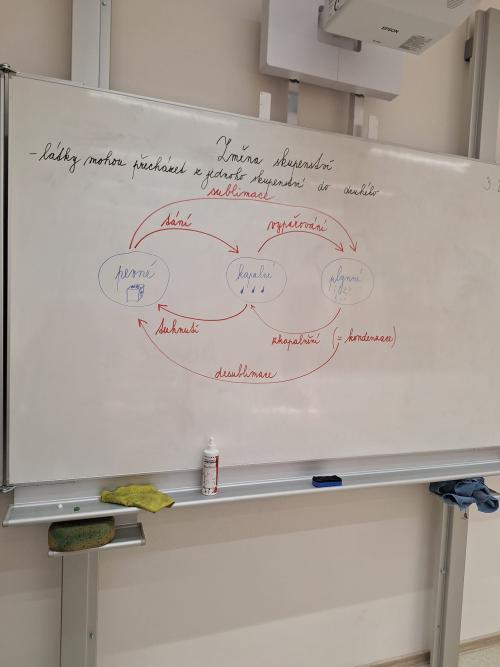 EPSON
Změna skupenství
- látky mohou přecházet z jednoho skupenství do druhého
sublimace
tání
vypařování
pevné
kapalné
plynné
tuhnutí
zkapalnění (= kondenzace)
desublimace